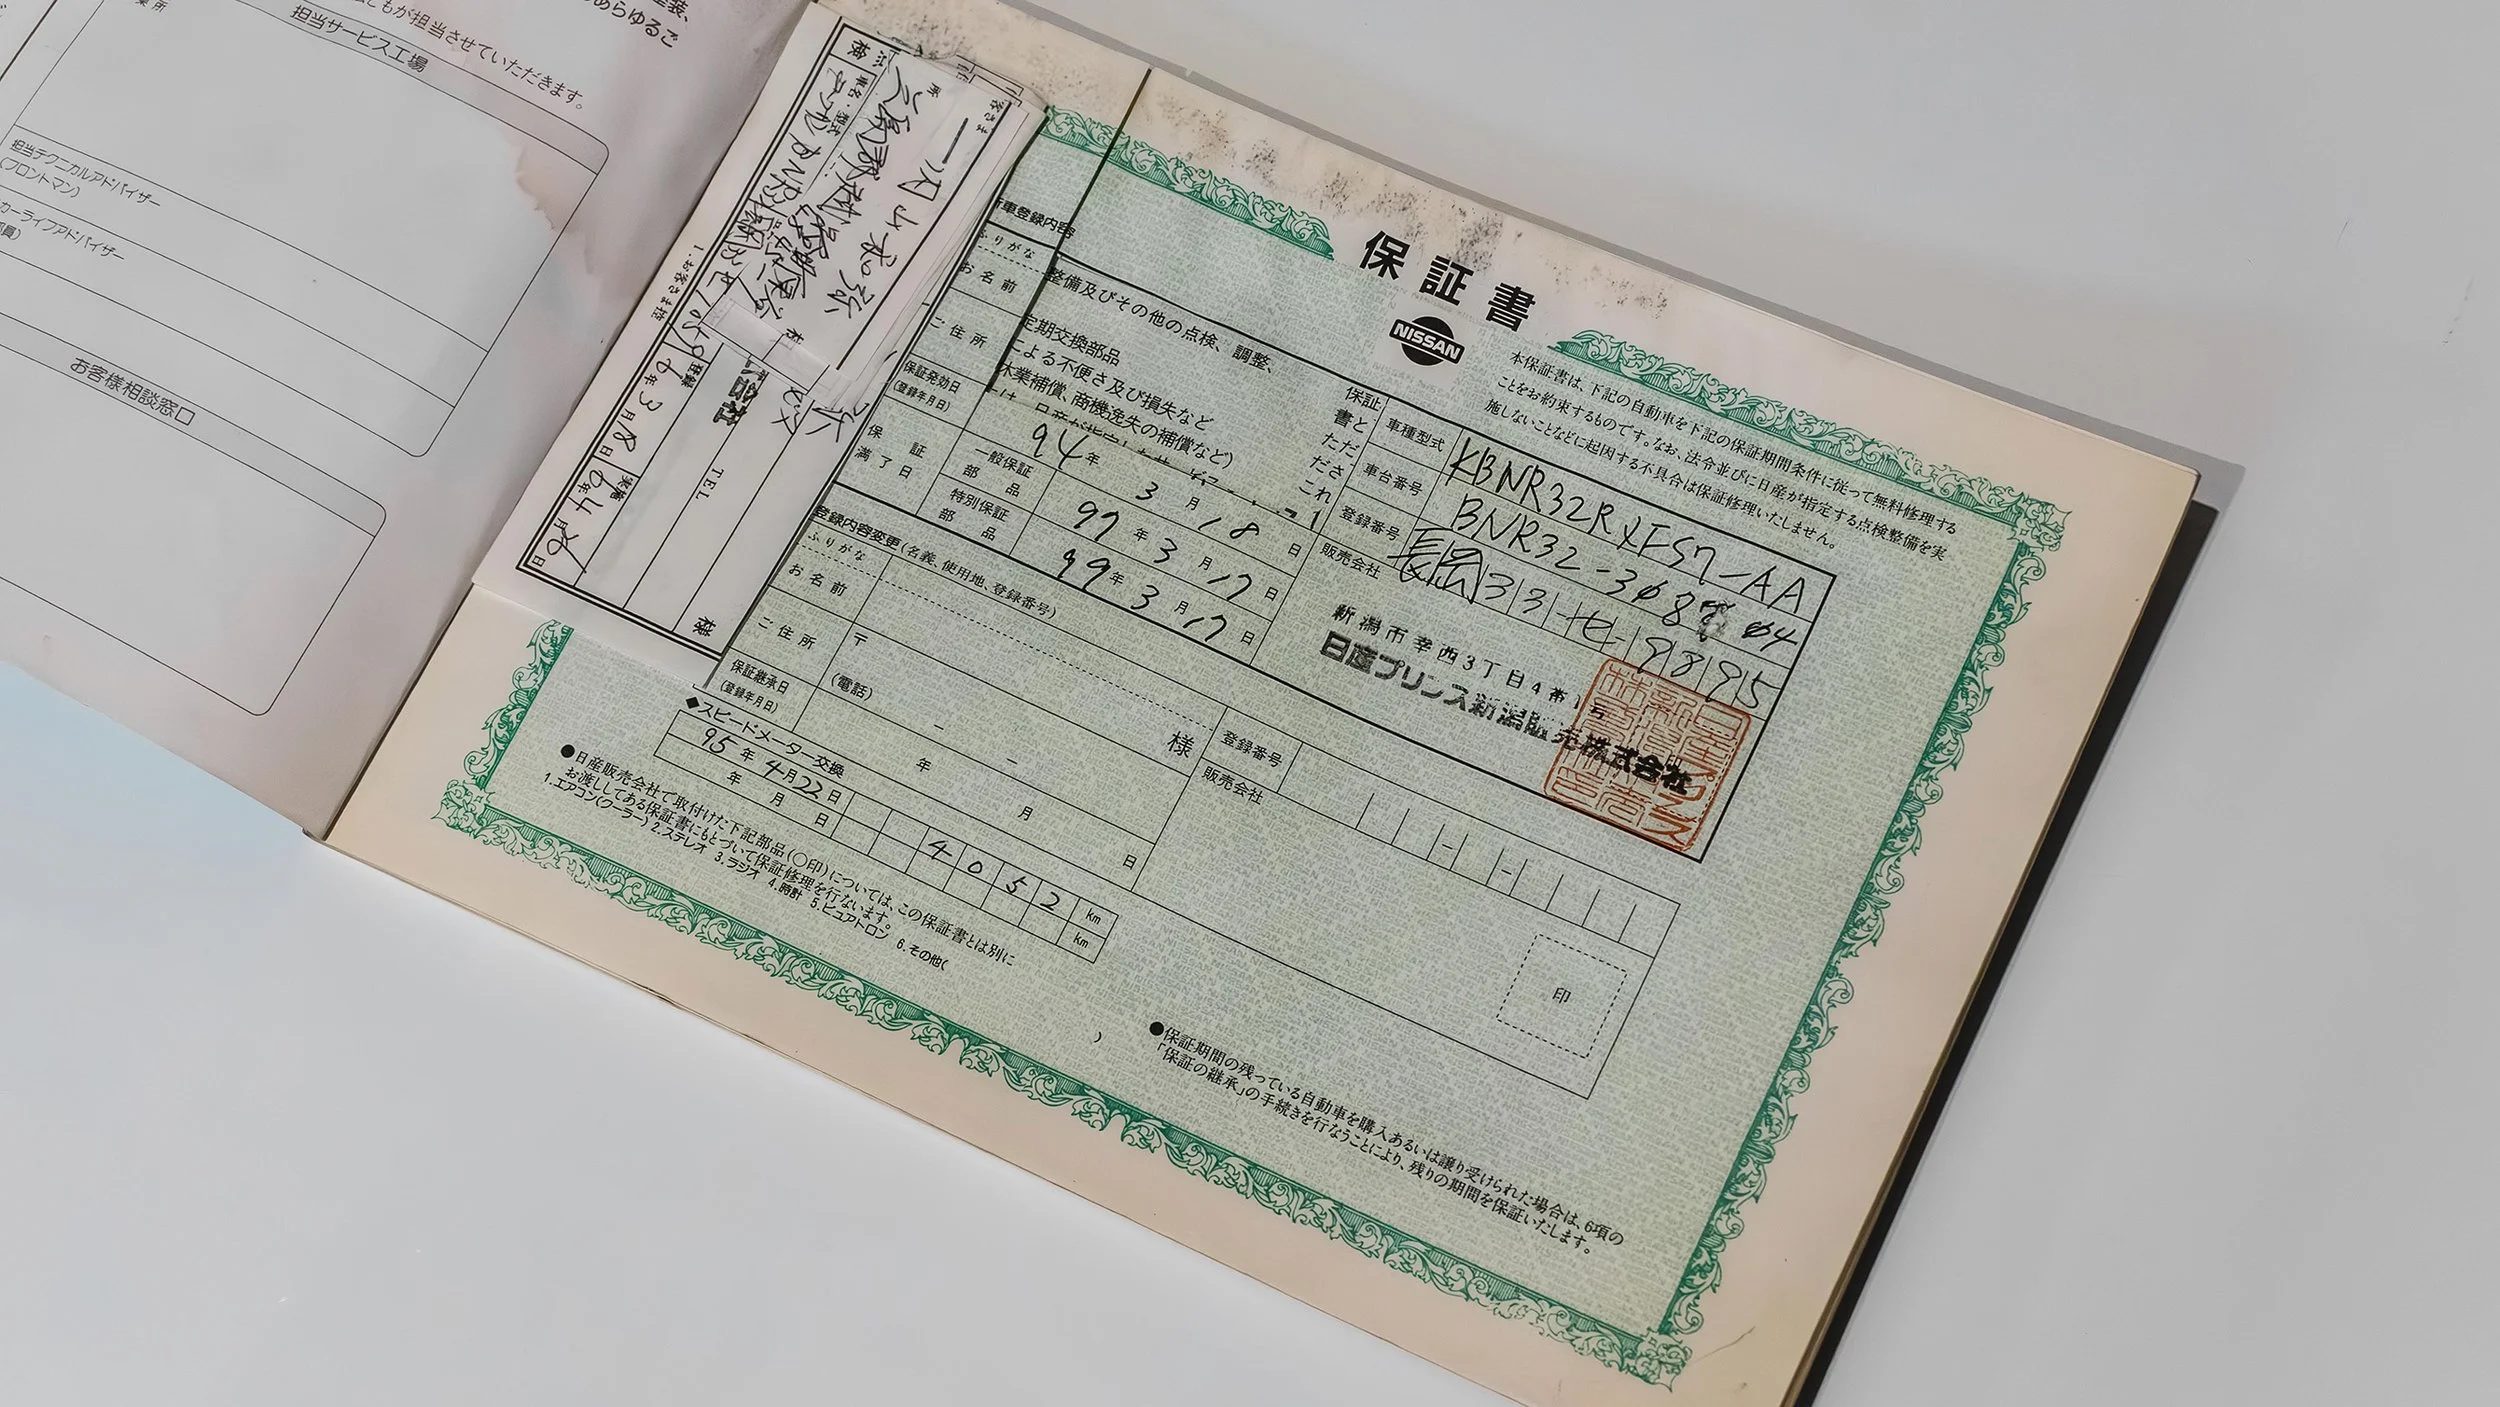 担当サービス工場
担当テクニカルアドバイザー
(フロントマン)
カーライフアドバイザー
お客様相談窓口
保証書
NISSAN
本保証書は、下記の自動車を下記の保証期間条件に従って無料修理する
ことをお約束するものです。なお、法令並びに日産が指定する点検整備を実
施しないことなどに起因する不具合は保証修理いたしません。
車登録内容
ふりがな
お名前
ご住所
保証発効日
(登録年月日)
94年3月18日
保証
満了日
一般保証
部品
97年3月17日
特別保証
部品
99年3月17日
整備及びその他の点検、調整、
定期交換部品
による不便さ及び損失など
休業補償、商機逸失の補償など)
保証
書と
ただ
ださ
これ
車種型式
KBNR32RXFS7-AA
車台番号
登録番号
長岡33-せ-9895
販売会社
新潟市幸西3丁目4番1号
日産プリンス新潟販売株式会社
登録内容変更(名義、使用地、登録番号)
ふりがな
お名前
様
ご住所
〒
(電話)
保証継承日
(登録年月日)
年 月 日
登録番号
販売会社
印
◆スピードメーター交換
95年4月22日 4052 km
年 月 日 km
●日産販売会社で取付けた下記部品(○印)については、この保証書とは別に
お渡ししてある保証書にもとづいて保証修理を行ないます。
1.エアコン(クーラー) 2.ステレオ 3.ラジオ 4.時計 5.ピュアトロン 6.その他( )
●保証期間の残っている自動車を購入あるいは譲り受けられた場合は、6項の
「保証の継承」の手続きを行なうことにより、残りの期間を保証いたします。
車名・型式
TEL
登録
6年3月18日
実施
6年4月26日